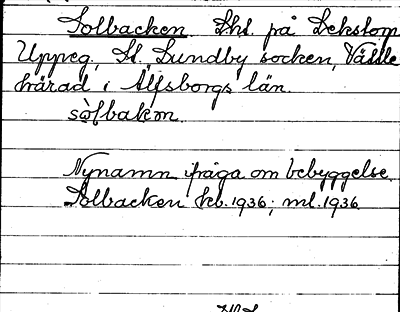 Solbacken Lht. på Lekstorp
Uppeg. St. Lundby socken, Vättle
härad i Älfsborgs län.
sòlbakɷn
Nynamn ifråga om bebyggelse.
Solbacken kb. 1936; ml. 1936